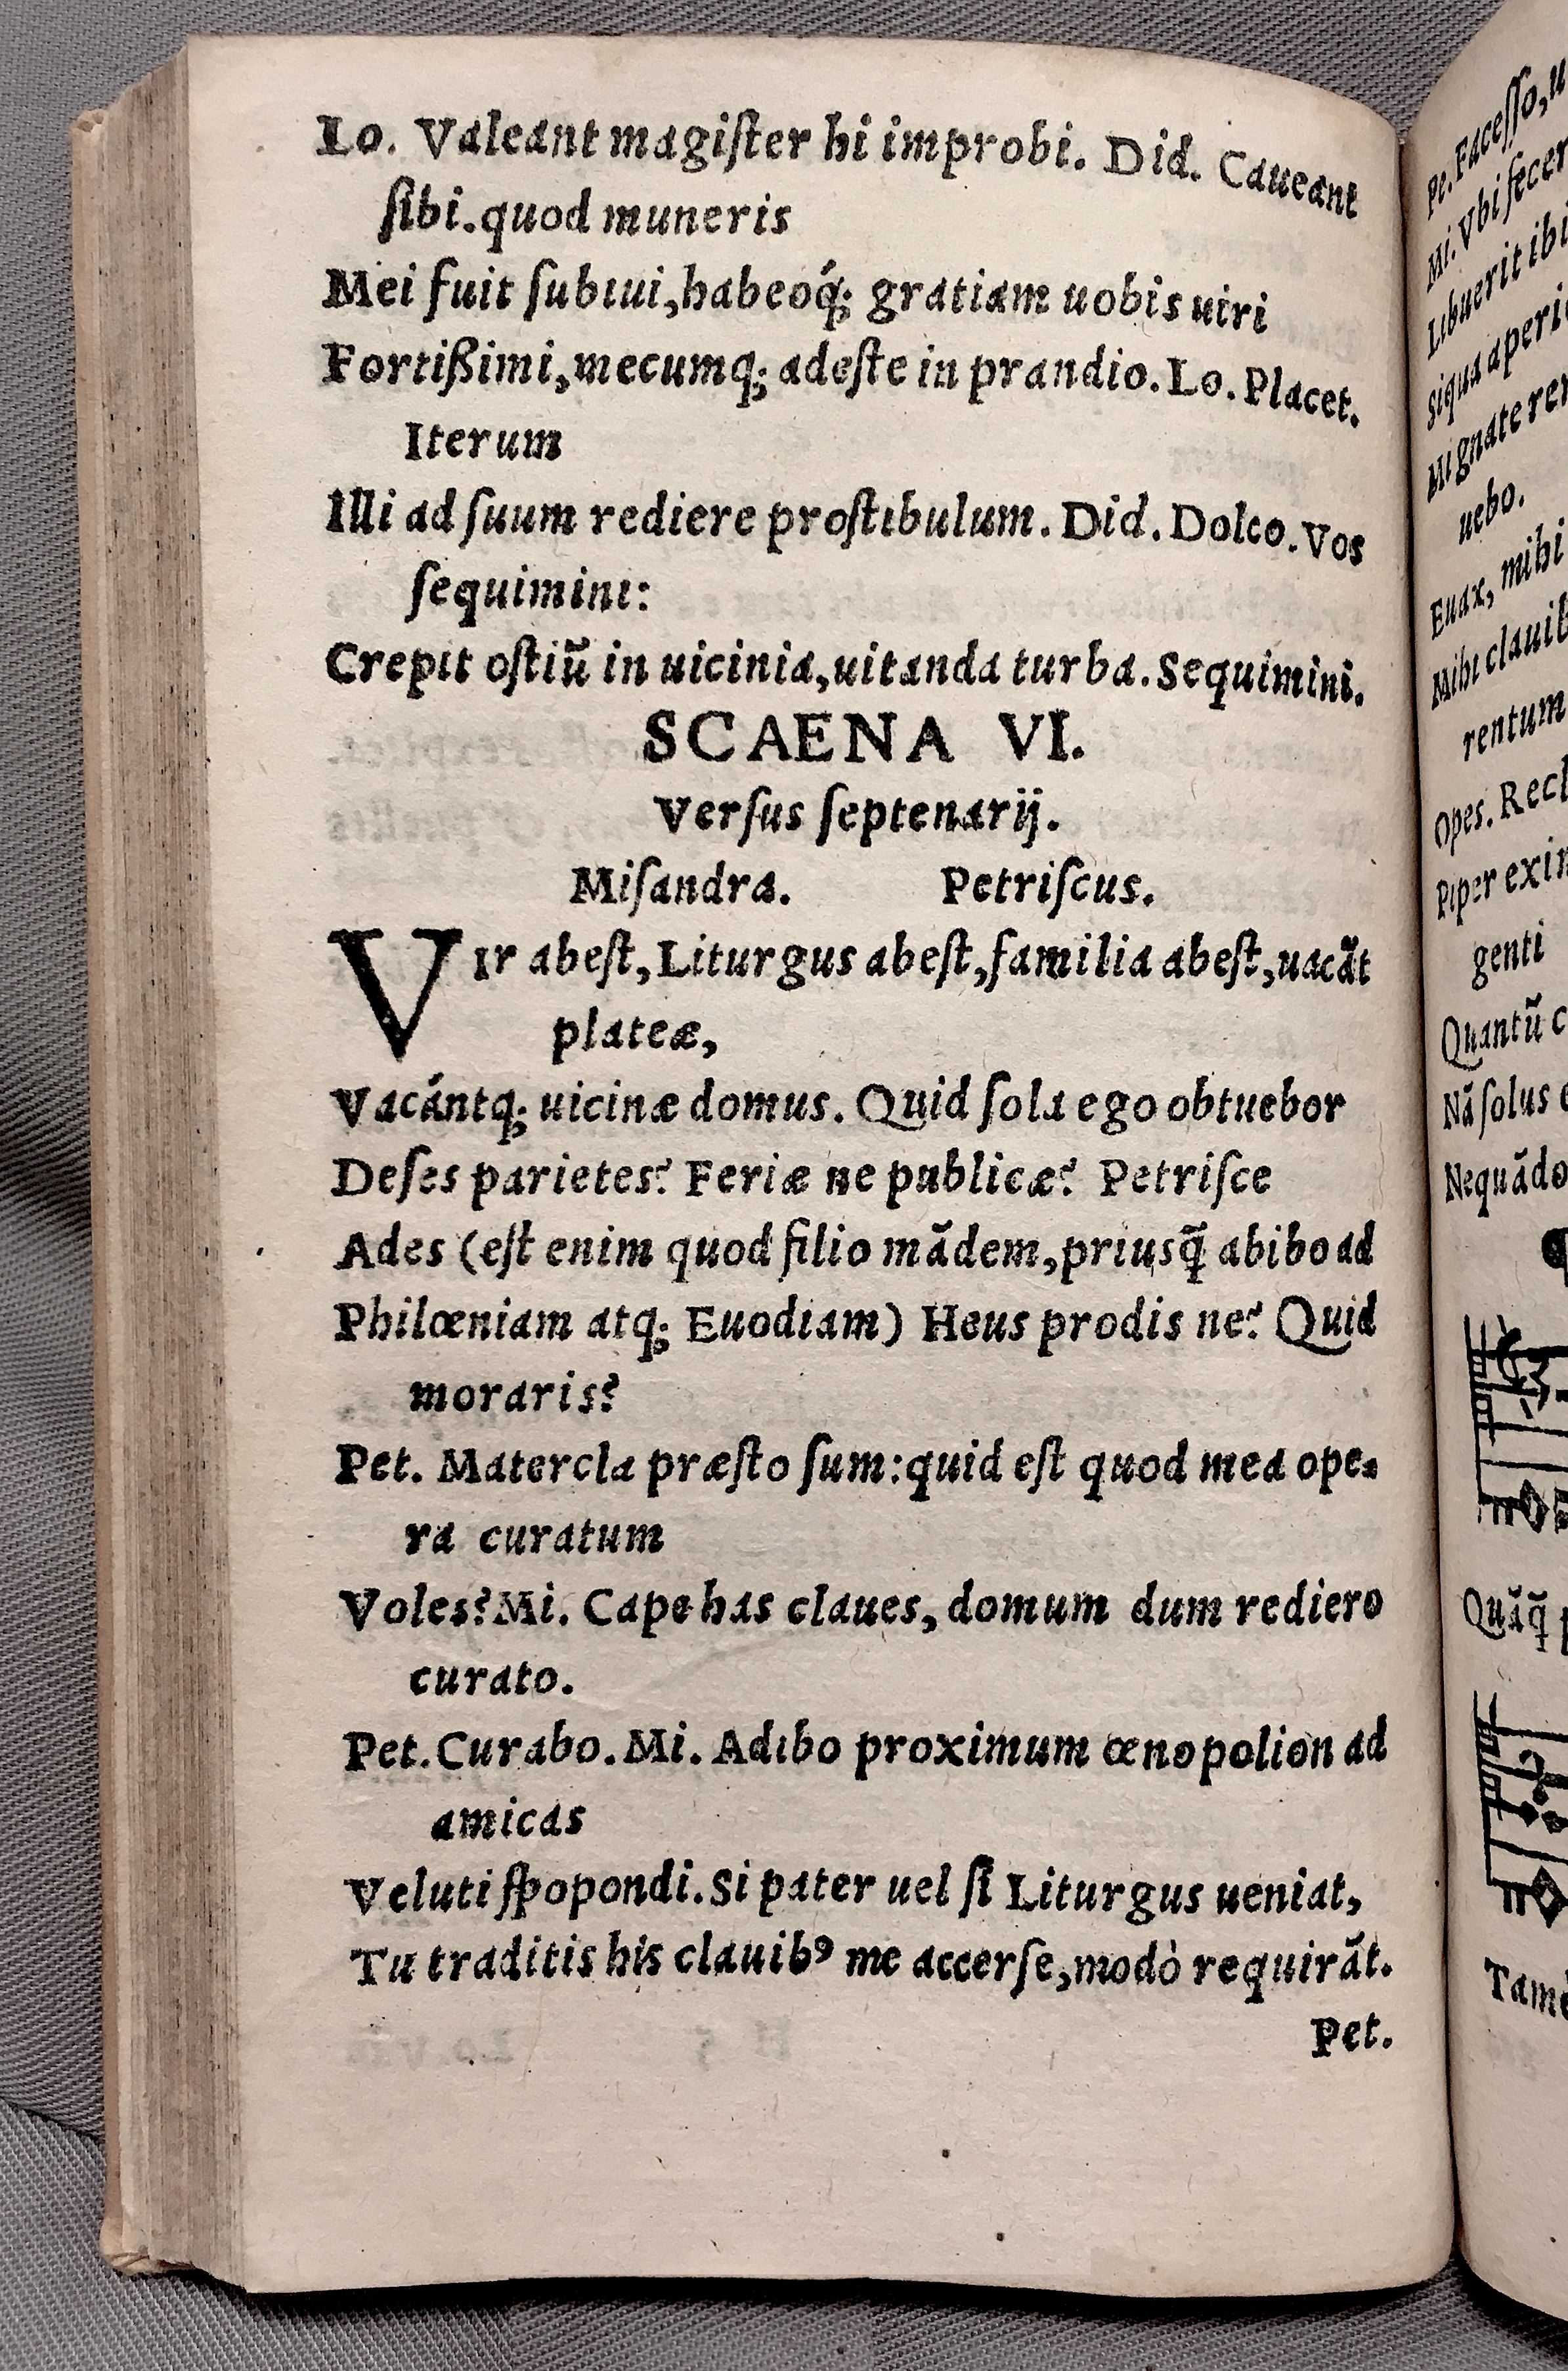 Lo. Valeant magiſter hi improbi. Did. Caueant
ſibi. quod muneris
Mei fuit ſubiui, habeoq́; gratiam uobis uiri
Fortißimi, mecumq; adeſte in prandio. Lo. Placet.
Iterum
Illi ad ſuum rediere proſtibulum. Did. Doleo. Vos
ſequimini:
Crepit oſtiũ in uicinia, uitanda turba. Sequimini.
SCAENA VI.
Verſus ſeptenarij.
Miſandra. Petriſcus.
VIr abeſt, Liturgus abeſt, familia abeſt, uacãt
plateæ,
Vacántq; uicinæ domus. Quid ſola ego obtuebor
Deſes parietes? Feriæ ne publicæ? Petriſce
Ades (eſt enim quod filio mãdem, priusq̃ abibo ad
Philœniam atq; Euodiam) Heus prodis ne? Quid
moraris?
Pet. Matercla præſto ſum: quid eſt quod mea ope-
ra curatum
Voles? Mi. Cape has claues, domum dum rediero
curato.
Pet. Curabo. Mi. Adibo proximum œnopolion ad
amicas
Veluti ſpopondi. Si pater uel ſi Liturgus ueniat,
Tu traditis his clauibꝰ me accerſe, modò requirãt.
Pet.
Pe. Faceſſo, u
Mi. Vbi fecer
Libuerit ibi
Siqua aperi
Mi gnate rem
uebo.
Euax, mihi
Mihi clauib
rentum
Opes. Recl
Piper exim
genti
Quantũ c
Nã ſolus
Nequãdo
Quãq̃
Tame